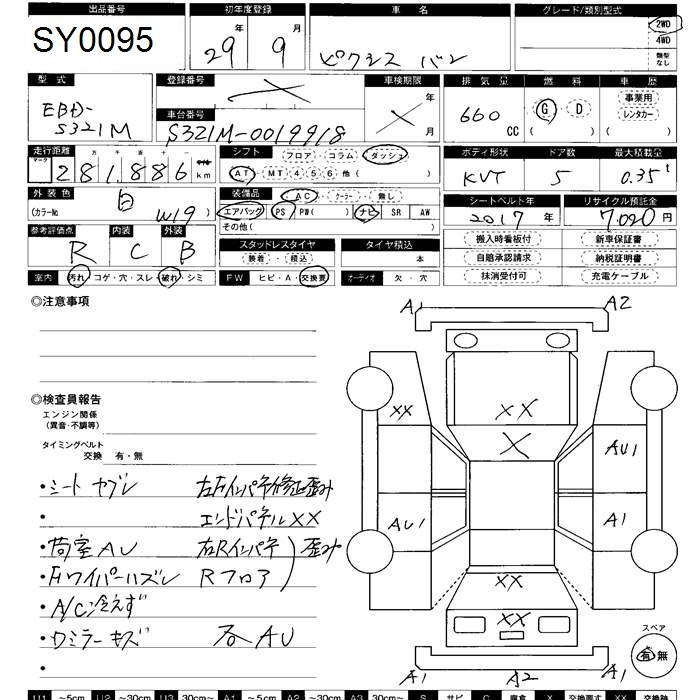 出品番号 初年度登録 車名 グレード/類別型式
SY0095 29年 9月 ピクシス バン 2WD
4WD
類型なし
型式 登録番号 車検期限 排気量 燃料 車歴
EBD-S321M X 年 X 月 660 CC G・D ( ) 事業用 レンタカー ( )
車台番号
S321M-0019918
走行距離 シフト フロア・コラム・ダッシュ ボディ形状 ドア数 最大積載量
マーク 十万千百十一
281,886 km AT・MT 4・5・6 他( ) KVT 5 0.35t
外装色 装備品 AC・クーラー・無し シートベルト年 リサイクル預託金
白
(カラーNo W19) エアバッグ PS PW( ) ナビ SR AW 2017年 7,020円
その他( )
参考評価点 内装 外装 スタッドレスタイヤ タイヤ積込 搬入時看板付 新車保証書
R C B 装着・積込 本 自賠承認請求 納税証明書
室内 汚れ・コゲ・穴・スレ・破れ・シミ FW ヒビ・A・交換要 オーディオ 欠・穴 抹消受付可 充電ケーブル
◎注意事項
A1 A2
◎検査員報告
エンジン関係
(異音・不調等)
タイミングベルト
交換 有・無
XX XX
X AU1
・シート ヤブレ 左Fインパネ修正歪み
・ エンドパネルXX
AU1 A1
・荷室AU 右Rインパネ 歪み
・Fワイパーハズレ Rフロア
XX
・A/C冷えず
XX
・ロミラーキズ 各AU
・
スペア
有 無
A1 A2 A1
U1 ~5cm U2 ~30cm U3 30cm~ A1 ~5cm A2 ~30cm A3 30cm~ S サビ C 腐食 X 交換要す X 交換跡